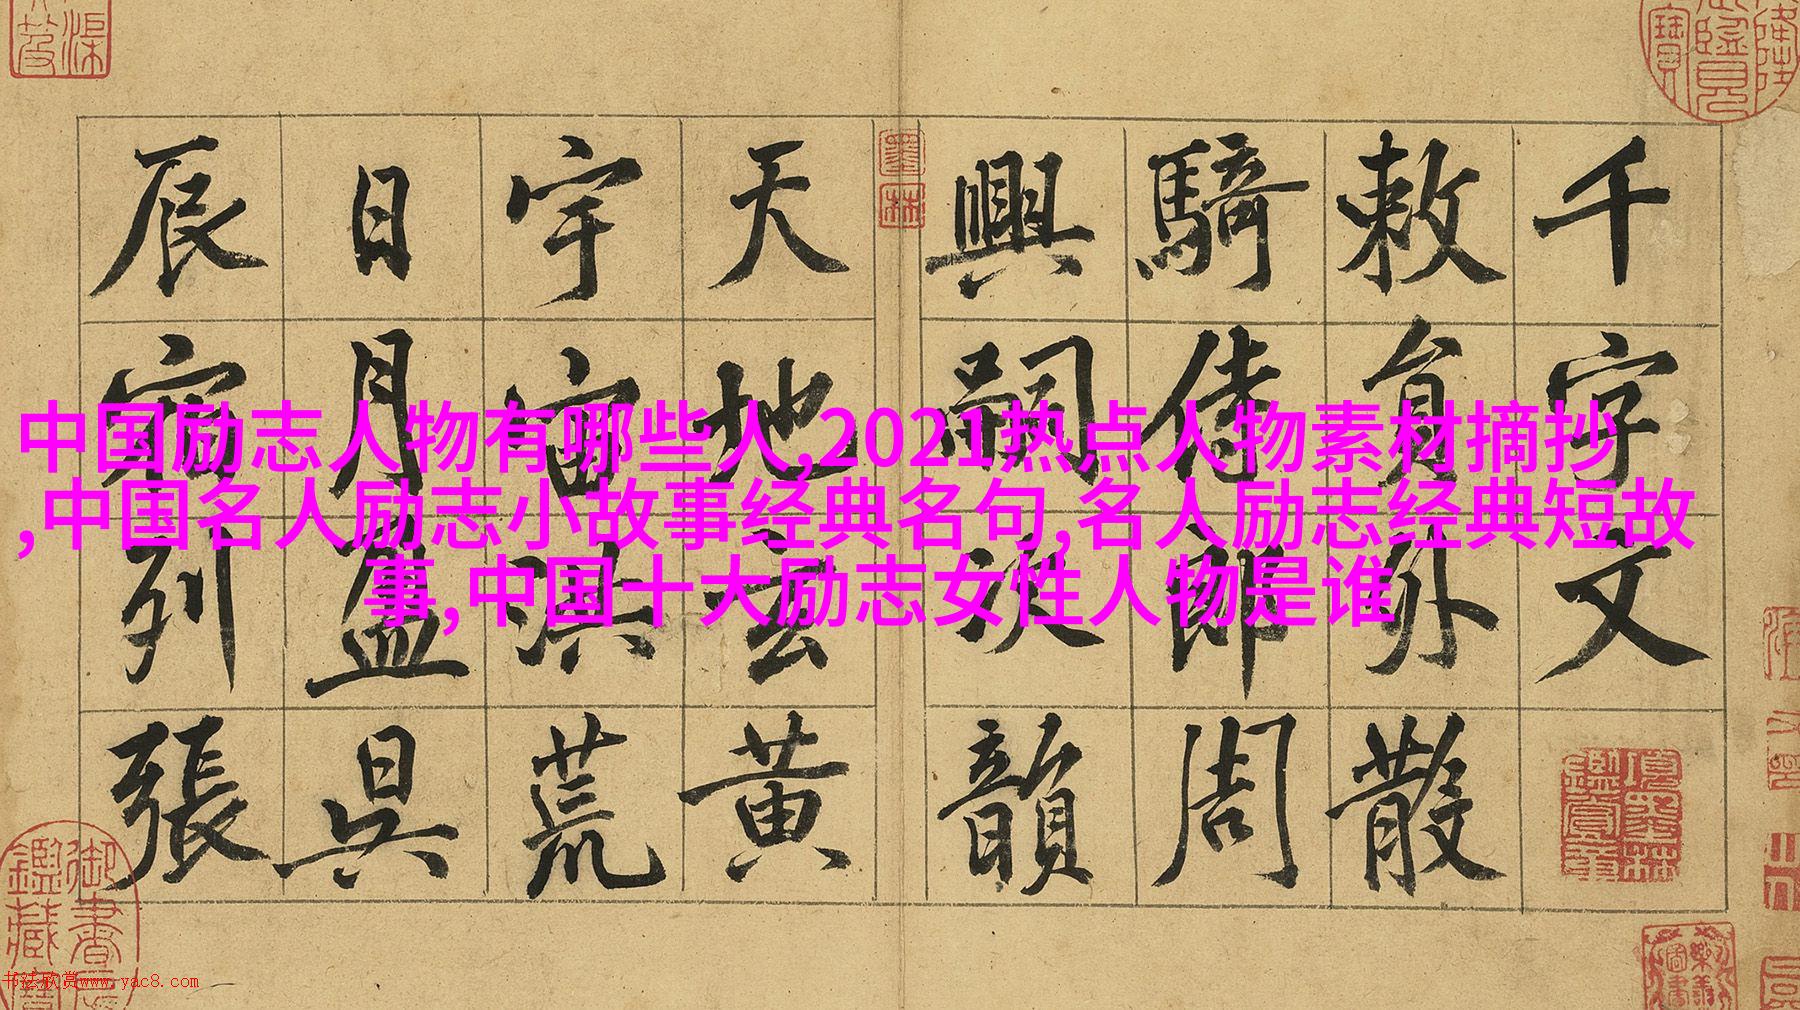 千字文
敕員外散
騎侍郎周
興嗣次韻
天地玄黄
宇宙洪荒
日月盈昃
辰宿列張
中国励志人物有哪些人,2021热点人物素材摘抄
,中国名人励志小故事经典名句,名人励志经典短故
事,中国十大励志女性人物是谁
墨林
項墨林鑑賞章
书法欣赏www.yac8.com